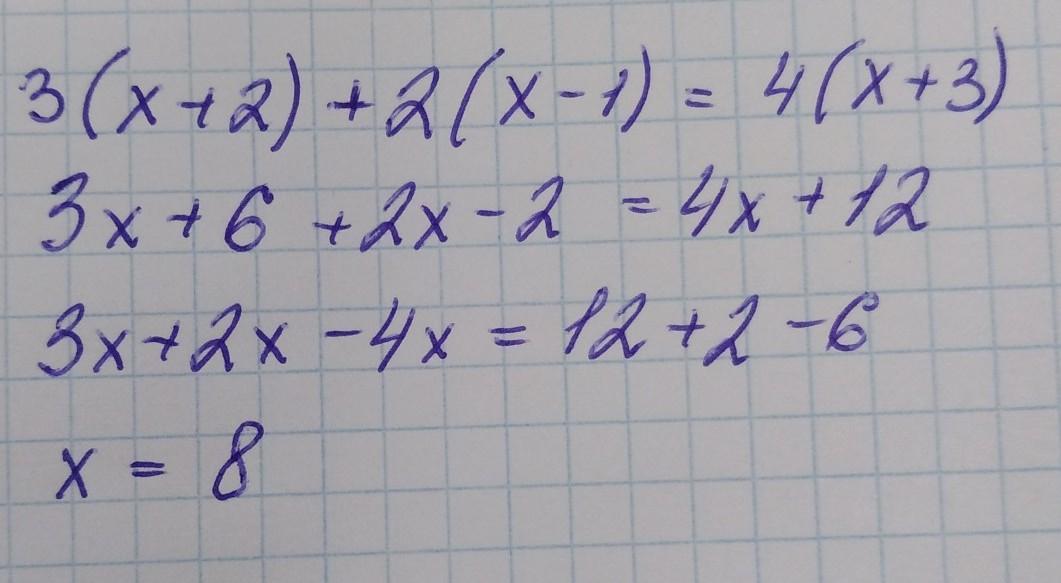 3(x+2)+2(x-1)=4(x+3)
3x+6+2x-2=4x+12
3x+2x-4x=12+2-6
x=8